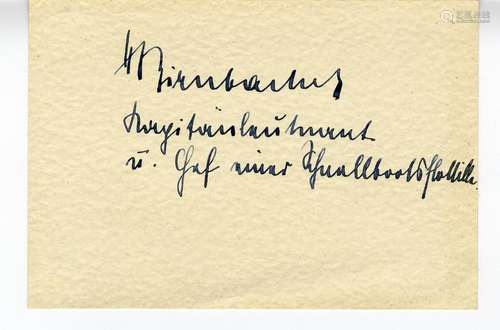 Birnbacher
Kapitänleutnant
u. Chef einer Schnellbootsflottille.